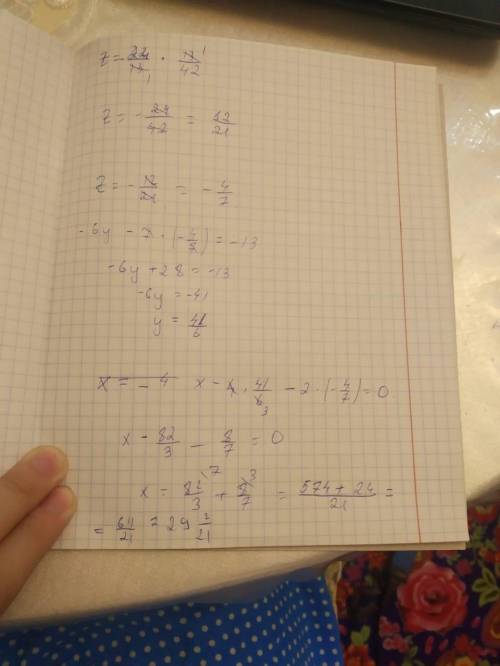 z = - 24/12 1 · 12 1/42
z = - 24/42 = 12/21
z = - 12/21 = - 4/7
-6y - 7 · (- 4/7) = -13
-6y + 28 = -13
-6y = -41
y = 41/6
x = - 4 x - 4 · 41/6 3 - 2 · (- 4/7) = 0
x - 82/3 - 8/7 = 0
x = 82 7/3 + 8 3/7 = 574 + 24/21 =
= 611/21 = 29 2/21